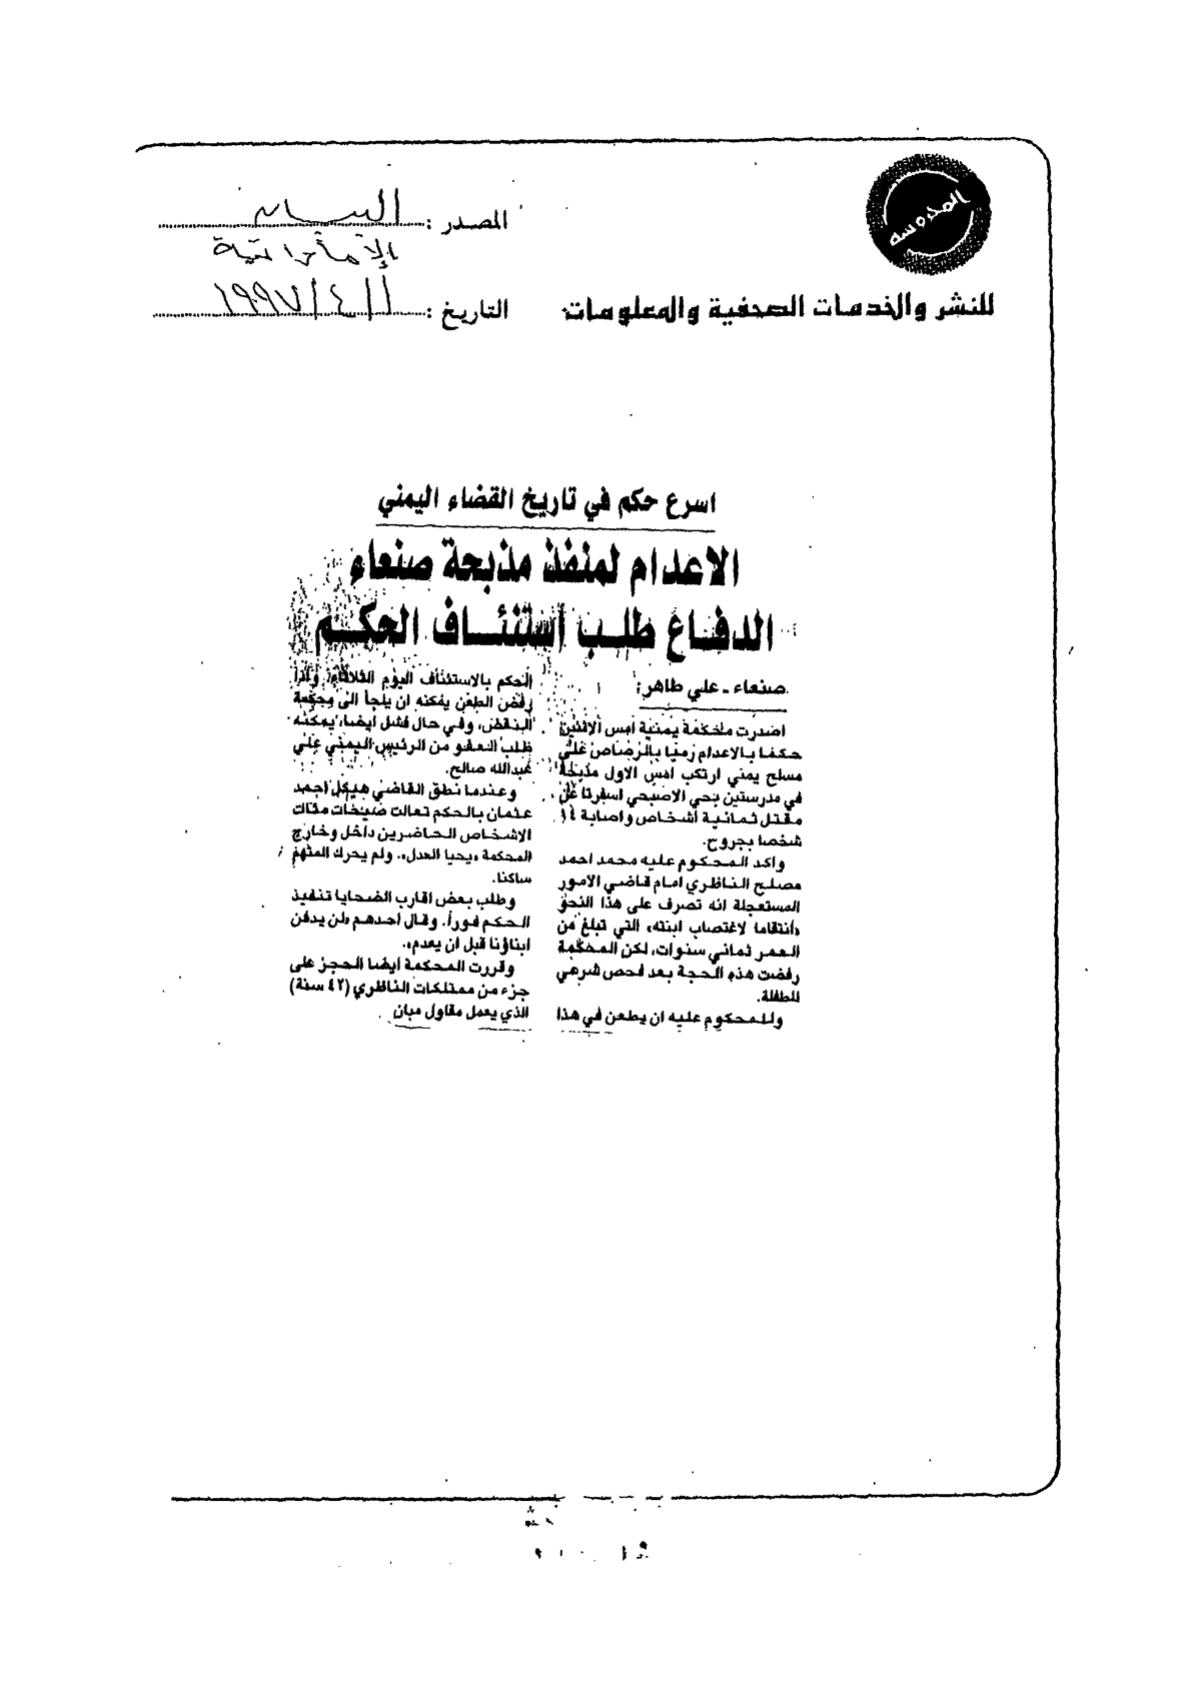 المحروسة
للنشر والخدمات الصحفية والمعلومات
المصدر : البيان
الإماراتية
التاريخ : ١/٤/١٩٩٧
اسرع حكم في تاريخ القضاء اليمني
الاعدام لمنفذ مذبحة صنعاء
الدفاع طلب استئناف الحكم
صنعاء - علي طاهر:
اصدرت محكمة يمنية أمس الاثنين
حكما بالاعدام رميا بالرصاص على
مسلح يمني ارتكب امس الاول مذبحة
في مدرستين بحي الاصبحي اسفرتا عن
مقتل ثمانية أشخاص واصابة ١٤
شخصا بجروح.
واكد المحكوم عليه محمد احمد
مصلح الناظري امام قاضي الامور
المستعجلة انه تصرف على هذا النحو
«انتقاما لاغتصاب ابنته» التي تبلغ من
العمر ثماني سنوات، لكن المحكمة
رفضت هذه الحجة بعد فحص شرعي
للطفلة.
وللمحكوم عليه ان يطعن في هذا
الحكم بالاستئناف اليوم الثلاثاء، واذا
رفض الطعن يمكنه ان يلجأ الى محكمة
النقض، وفي حال فشل ايضا، يمكنه
طلب العفو من الرئيس اليمني علي
عبدالله صالح.
وعندما نطق القاضي هيكل احمد
عثمان بالحكم تعالت صيحات مئات
الاشخاص الحاضرين داخل وخارج
المحكمة «يحيا العدل». ولم يحرك المتهم
ساكنا.
وطلب بعض اقارب الضحايا تنفيذ
الحكم فوراً. وقال احدهم «لن يدفن
ابناؤنا قبل ان يعدم».
وقررت المحكمة ايضا الحجز على
جزء من ممتلكات الناظري (٤٢ سنة)
الذي يعمل مقاول مبان